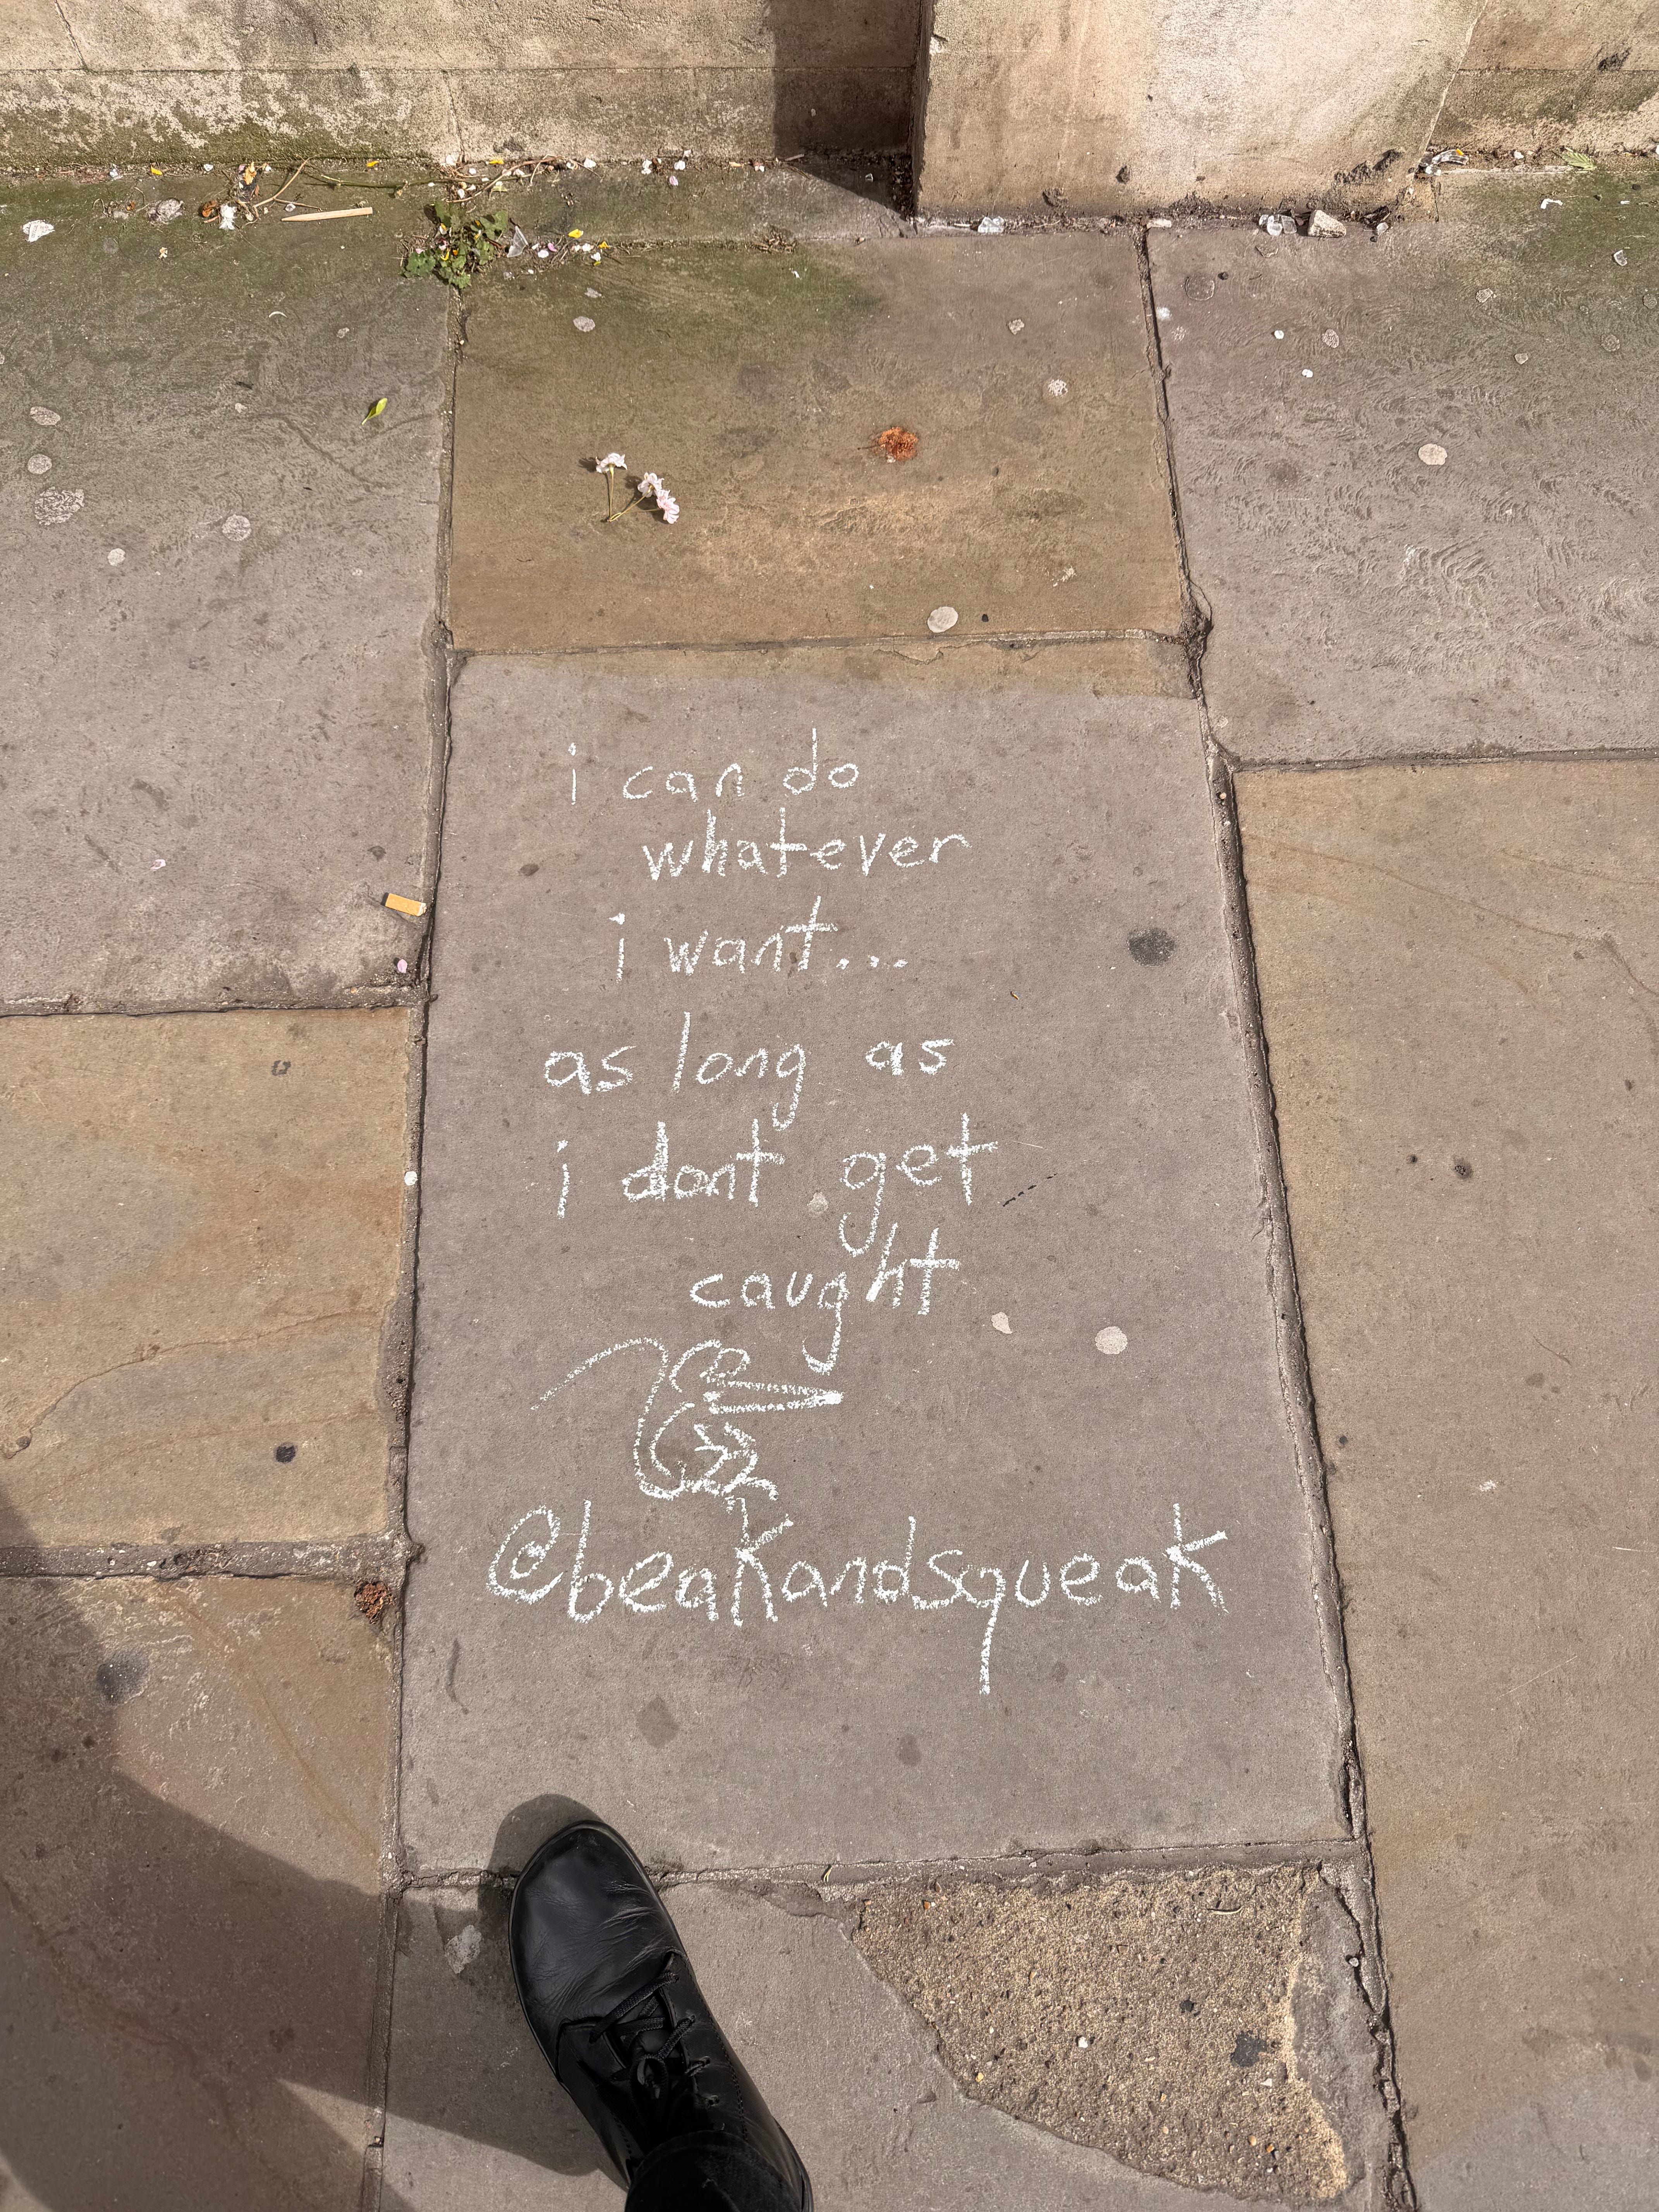 i can do
whatever
i want...
as long as
i dont get
caught
@beakandsqueak